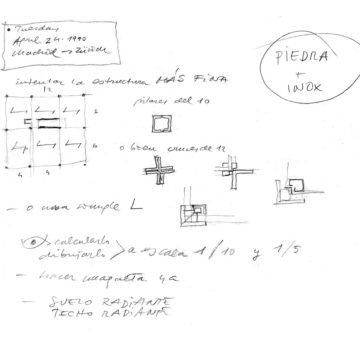 • Tuesday
April 24·1990
Madrid → Zürich
PIEDRA
+
INOX
intentar la estructura MÁS FINA
12
pilares del 10
o bien cruces de 12
4 4
— o una simple L
calcularlo
dibujarlo > a escala 1/10 y 1/5
— hacer maqueta ya
— SUELO RADIANTE
TECHO RADIANTE